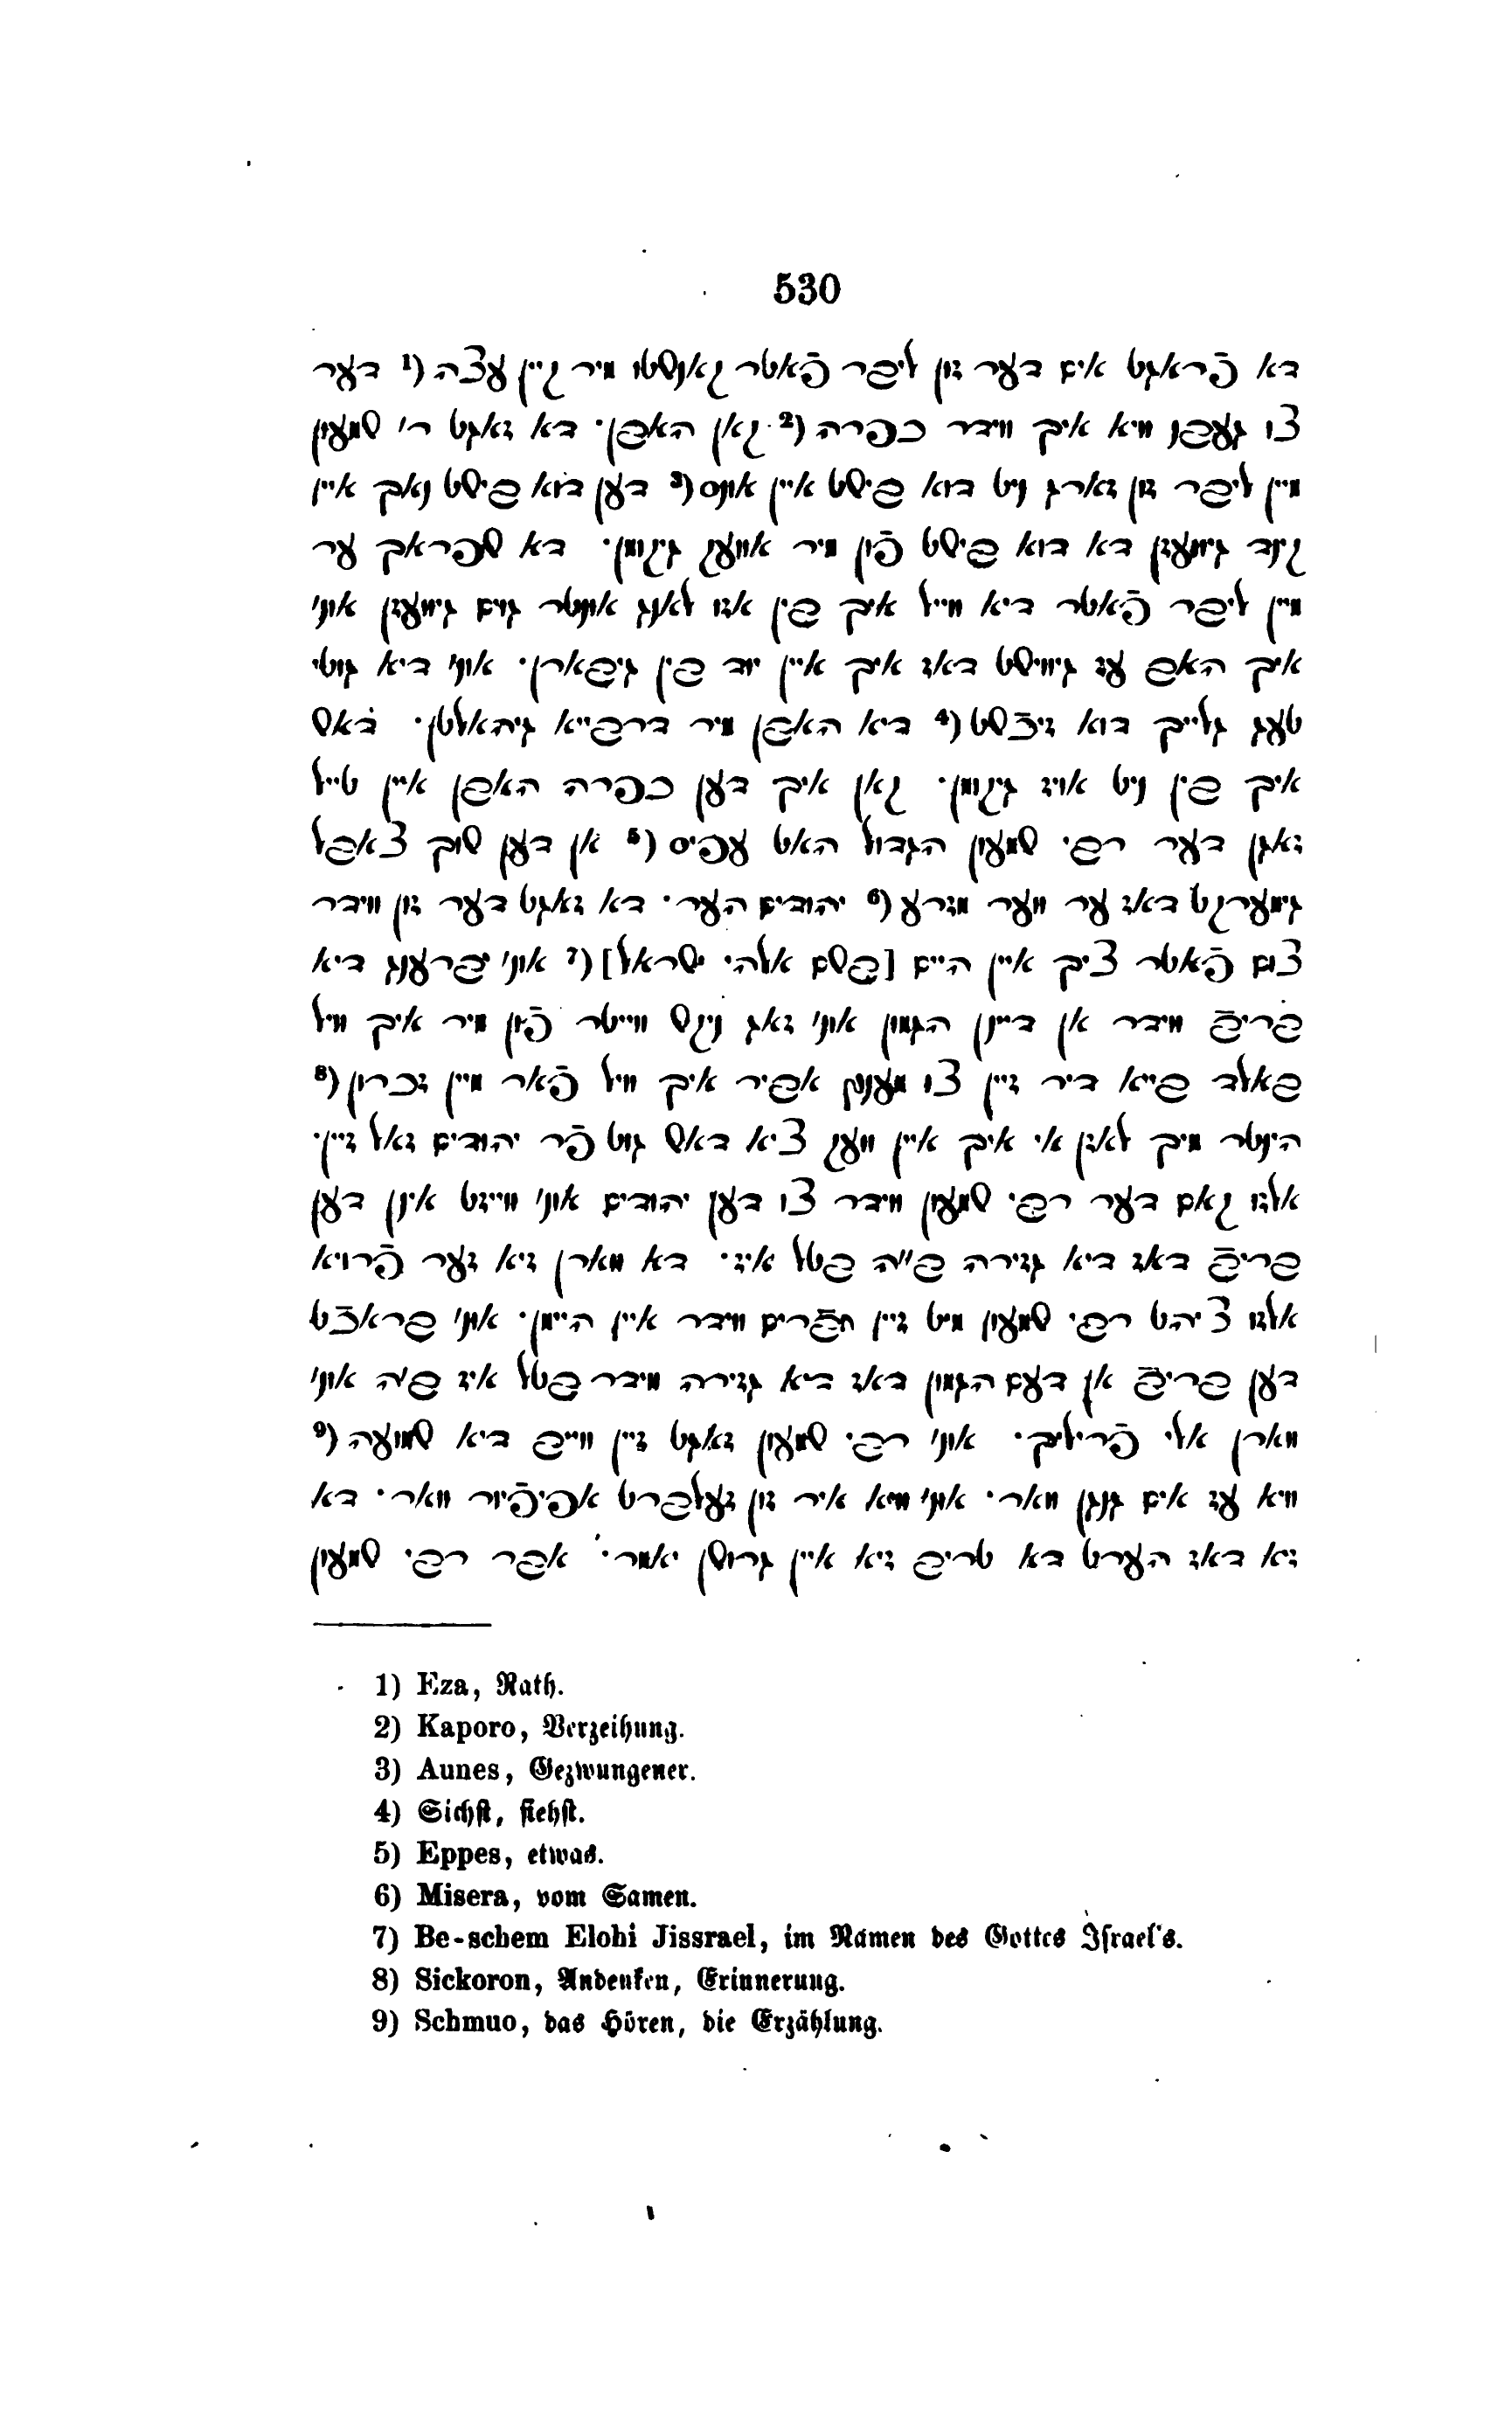 530
דא פֿראגט אים דער זון ליבר פֿאטר קאנשטו מיר קיין עצה (1 דער
צו געבן וויא איך ווידר כפרה (2 קאן האבן· דא זאגט ר׳ שמעון
מיין ליבר זון זארג ניט דוא בישט איין אונס (3 דען דוא בישט נאך איין
קינד גיוועזן דא דוא בישט פֿון מיר אוועק גיקומן· דא שפראך ער
מיין ליבר פֿאטר דיא ווייל איך בין אזו לאנג אונטר גוים גיוועזן אונ׳
איך האב עז גיווישט דאז איך איין יוד בין גיבארן· אונ׳ דיא גוטי
טעג גלייך דוא זיכֿשט (4 דיא האבן מיר דרבייא גיהאלטן· דאש
איך בין ניט אויז גיקומן· קאן איך דען כפרה האבן איין טייל
זאגן דער רבי שמעון הגדול האט עפיס (5 אן דען שוך צאפל
גימערקט דאז ער ווער מזרע (6 יהודים הער· דא זאגט דער זון ווידר
צום פֿאטר ציך איין היים [בשם אלהי ישראל] (7 אונ׳ ברענג דיא
בריבֿ ווידר אן דיינן הגמון אונ׳ זאג ניקש ווייטר פֿון מיר איך וויל
באלד בייא דיר זיין צו מענץ אביר איך וויל פֿאר מיין זכרון (8
הינטר מיך לאזן א׳ איך איין וועק ציא דאש גוט פֿר יהודים זאל זיין·
אלזו קאם דער רבי שמעון ווידר צו דען יהודים אונ׳ ווייזט אינן דען
בריבֿ דאז דיא גזירה ב״ה בטל איז· דא ווארן זיא זער פֿרויא
אלזו ציהט רבי שמעון מיט זיין חבֿרים ווידר איין היימן· אונ׳ בראכֿט
דען בריבֿ אן דעם הגמון דאז דיא גזירה ווידר בטל איז ב״ה אונ׳
ווארן אלי פֿריליך· אונ׳ רבי שמעון זאגט זיין ווייב דיא שמועה (9
וויא עז אים גנגן וואר· אונ׳ וויא איר זון זעלברט אפיפֿיור וואר· דא
זיא דאז הערט דא טריב זיא איין גרושן יאמר· אבר רבי שמעון
1) Eza, Rath.
2) Kaporo, Verzeihung.
3) Aunes, Gezwungener.
4) Sichst, siehst.
5) Eppes, etwas.
6) Misera, vom Samen.
7) Be-schem Elohi Jissrael, im Namen des Gottes Israel's.
8) Sickoron, Andenken, Erinnerung.
9) Schmuo, das Hören, die Erzählung.